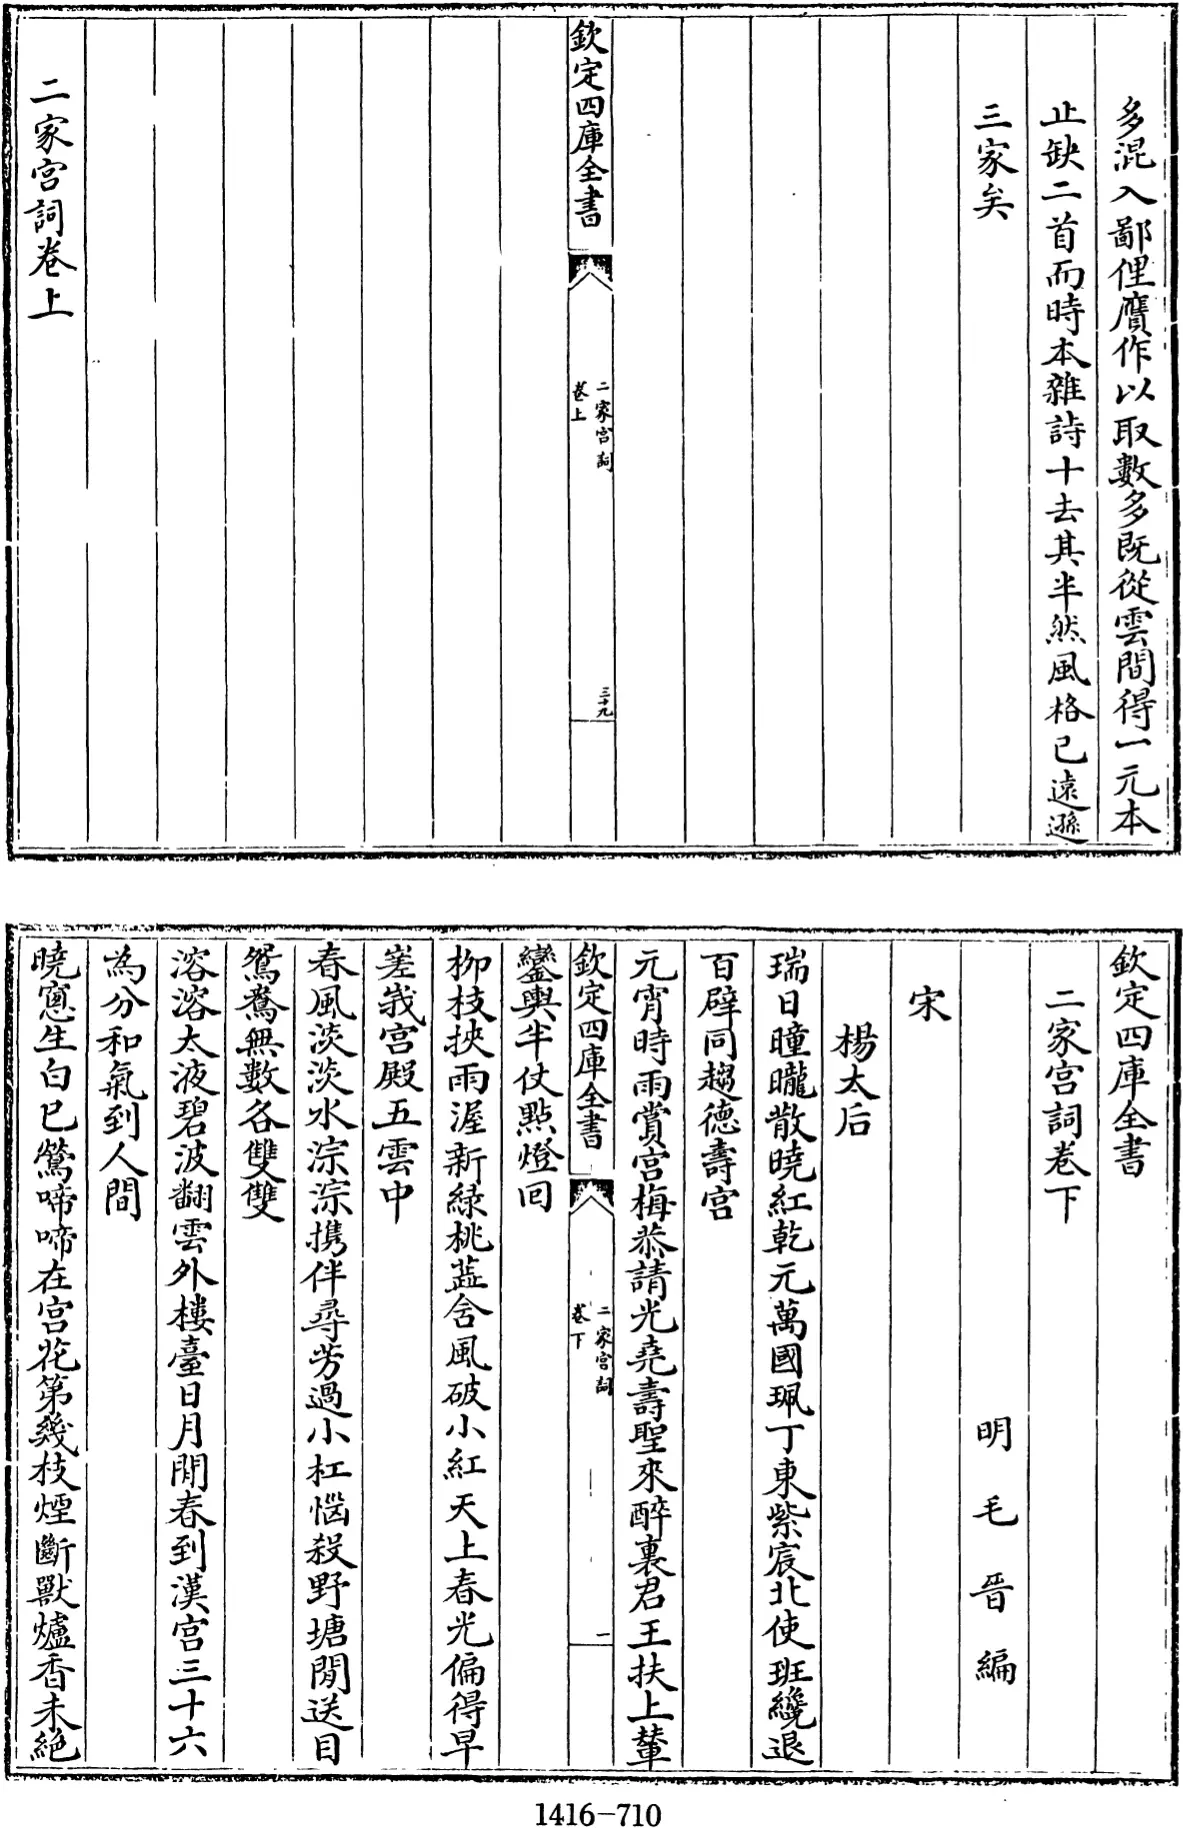 多混入鄙俚贗作以取數多既從雲間得一元本
止缺二首而時本雜詩十去其半然風格已遠遜
三家矣
欽定四庫全書
二家宮詞
卷上
三十九
二家宮詞卷上
欽定四庫全書
二家宮詞卷下
明毛晉編
宋
楊太后
瑞日曈曨散曉紅乾元萬國珮丁東紫宸北使班纔退
百辟同趨德壽宮
元宵時雨賞宮梅恭請光堯壽聖來醉裏君王扶上輦
欽定四庫全書
二家宮詞
卷下
一
鑾輿半仗點燈回
柳枝挾雨渥新綠桃蕋含風破小紅天上春光偏得早
嵳峩宮殿五雲中
春風淡淡水淙淙携伴尋芳過小杠惱殺野塘閒送目
鴛鴦無數各雙雙
溶溶太液碧波翻雲外樓臺日月閒春到漢宮三十六
為分和氣到人間
曉窻生白已鶯啼啼在宮花第幾枝煙斷獸爐香未絕
1416-710